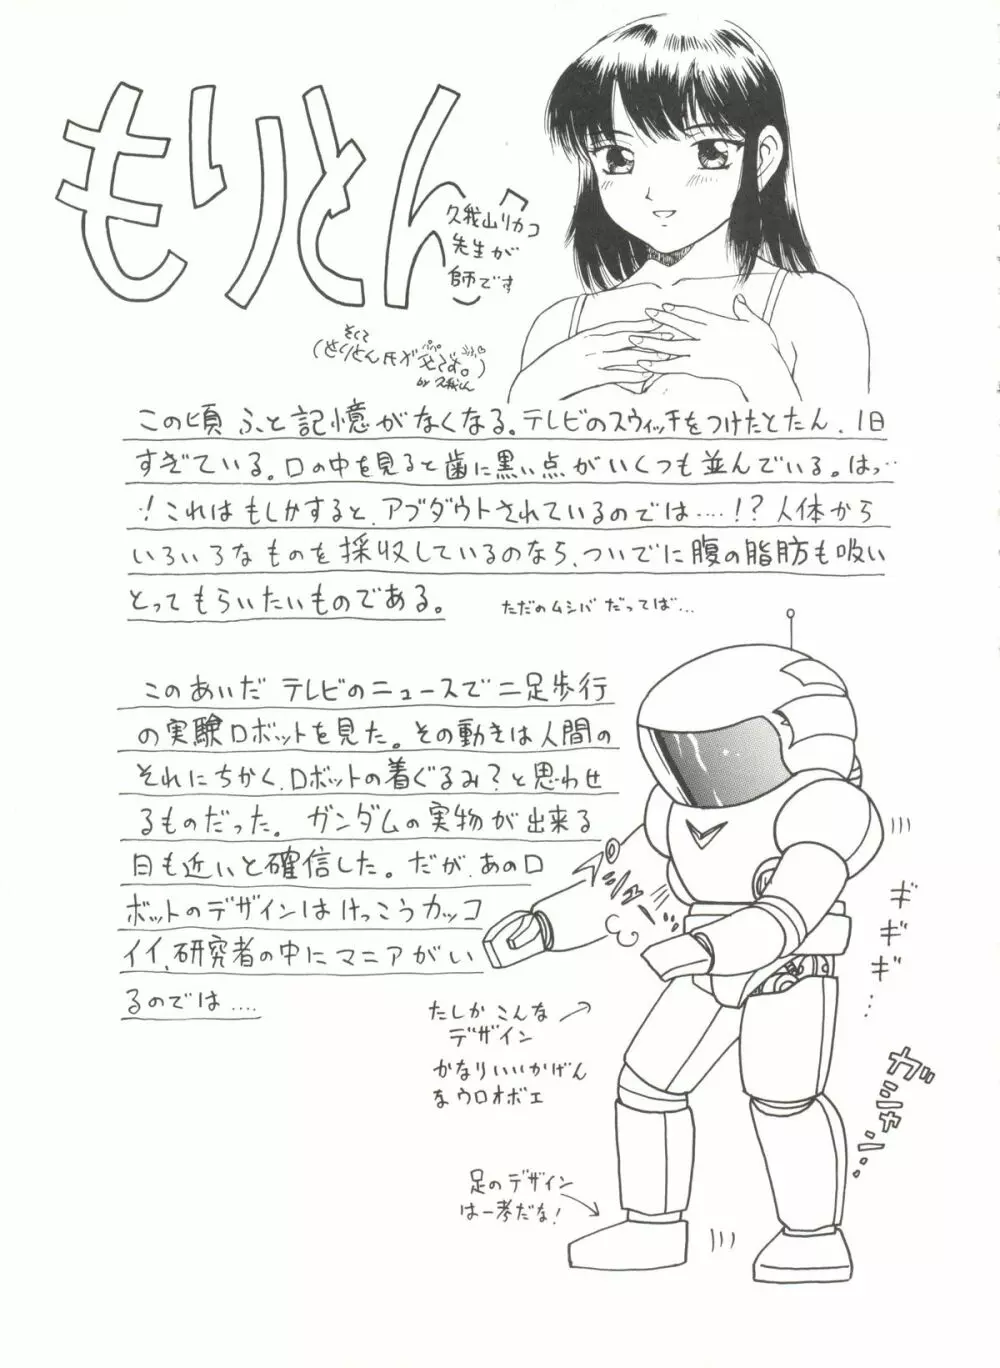 もりとん
久我山リカコ
先生が
師です
そして
(もりとん氏が
です。)
by 久我さん
この頃ふと記憶がなくなる。テレビのスウィッチをつけたとたん、1日
すぎている。口の中を見ると歯に黒い点がいくつも並んでいる。はっ…
!これはもしかすると、アブダウトされているのでは……!?人体から
いろいろなものを採収しているのなら、ついでに腹の脂肪も吸い
とってもらいたいものである。
ただのムシバだってば…
このあいだテレビのニュースで二足歩行
の実験ロボットを見た。その動きは人間の
それにちかく、ロボットの着ぐるみ?と思わせ
るものだった。ガンダムの実物が出来る
日も近いと確信した。だが、あのロ
ボットのデザインはけっこうカッコ
イイ、研究者の中にマニアがい
るのでは….
ギギギ…
たしかこんな
デザイン
かなりいいかげん
なウロオボエ
ガシャン…
足のデザイン
は一考だな!